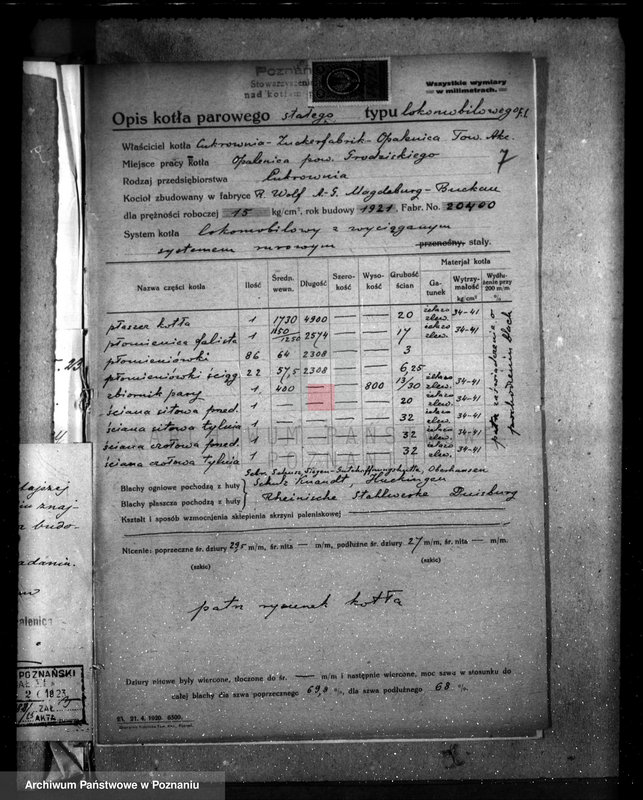 Poznań
Stowarzyszenie
nad kotłam
Wszystkie wymiary
w milimetrach.
Opis kotła parowego stałego typu lokomobilowego
Właściciel kotła Cukrownia-Zuckerfabrik-Opalenica Tow. Akc.
Miejsce pracy kotła Opalenica pow. Grodzickiego 7
Rodzaj przedsiębiorstwa Cukrownia
Kocioł zbudowany w fabryce R. Wolf A-G. Magdeburg-Buckau
dla prężności roboczej 15 kg/cm², rok budowy 1921, Fabr. No. 20400
System kotła lokomobilowy z wyciąganym
systemem rurowym przenośny, stały.
Nazwa części kotła Ilość Średn. wewn. Długość Szerokość Wysokość Grubość ścian Materjał kotła Gatunek Wytrzymałość kg/cm² Wydłużenie przy 200 m/m %
płaszcz kotła 1 1730 4900 — — 20 żelazo zlew. 34-41
płomienica falista 1 1150/1250 2574 — — 17 żelazo zlew. 34-41
płomieniówki 86 64 2308 — — 3
płomieniówki ściąg. 22 57,5 2308 — — 6,25
zbiornik pary 1 400 — — 800 13/30 żelazo zlew. 34-41
ściana sitowa przed. 1 — — — — 20 żelazo zlew. 34-41
ściana sitowa tylnia 1 — — — — 32 żelazo zlew. 34-41
ściana czołowa przed. 1 — — — — 32 żelazo zlew. 34-41
ściana czołowa tylnia 1 — — — — 32 żelazo zlew. 34-41
patrz zaświadczenie o pochodzeniu blach
Oberhausen
Blachy ogniowe pochodzą z huty Schulz Knaudt, Huckingen
Blachy płaszcza pochodzą z huty Rheinische Stahlwerke Duisburg
Kształt i sposób wzmocnienia sklepienia skrzyni paleniskowej —
Nicenie: poprzeczne śr. dziury 29,5 m/m, śr. nita — m/m, podłużne śr. dziury 27 m/m, śr. nita — m/m.
(szkic) (szkic)
patrz rysunek kotła
Dziury nitowe były wiercone, tłoczone do śr. — m/m i następnie wiercone, moc szwa w stosunku do
całej blachy dla szwa poprzecznego 69,8 %, dla szwa podłużnego 68 %.
21. 21. 4. 1920. 6500.
ARCHIWUM PAŃSTWOWE
W POZNANIU
tajszej
znaj-
budo-
adania.
alenica
POZNAŃSKI
ZAŁ.
AKTA
Archiwum Państwowe w Poznaniu